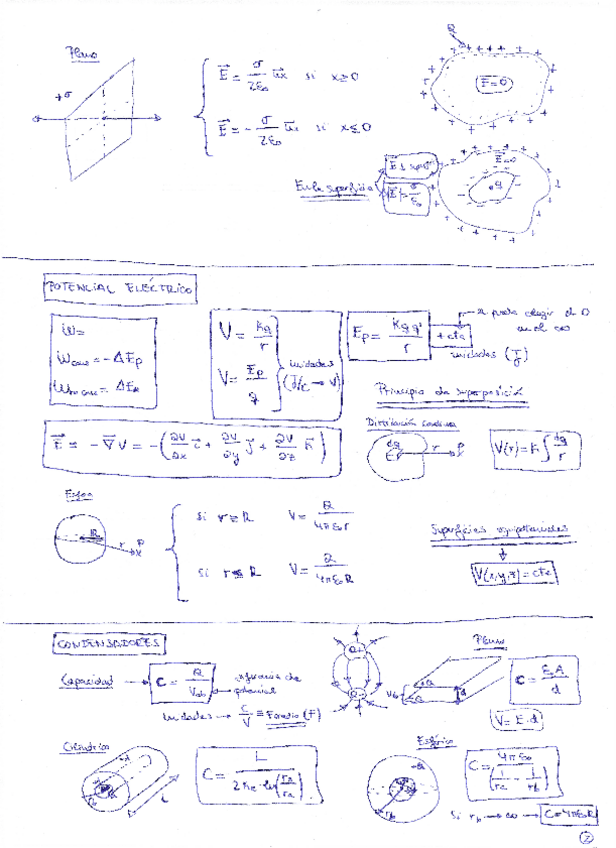 Plano
+σ
E⃗ = σ/2ε₀ u⃗x si x≥0
E⃗ = - σ/2ε₀ u⃗x si x≤0
Q
E⃗=0
En la superficie
E⃗=0
q
POTENCIAL ELÉCTRICO
W=
Wcons = -ΔEp
Wno cons = ΔEm
V = kq/r
V = Ep/q
unidades (J/C → V)
Ep = kqq'/r + cte
se puede elegir de 0 en el ∞
unidades (J)
Principio de superposición
E⃗ = -∇⃗V = -(∂V/∂x i⃗ + ∂V/∂y j⃗ + ∂V/∂z k⃗)
Distribución continua
dq r P
V(r) = k∫ dq/r
Esfera
R r P
si r≥R V = Q/4πε₀r
si r≤R V = Q/4πε₀R
Superficies equipotenciales
V(x,y,z) = cte
CONDENSADORES
Capacidad → C = Q/Vab → diferencia de potencial
unidades → C/V ≡ Faradio (F)
Q+
Q-
Plano
d
C = ε₀A/d
V = E·d
Cilíndrico
L
Esférico
C = 4πε₀/(1/ra - 1/rb)
Si rb → ∞ → C=4πε₀R
2